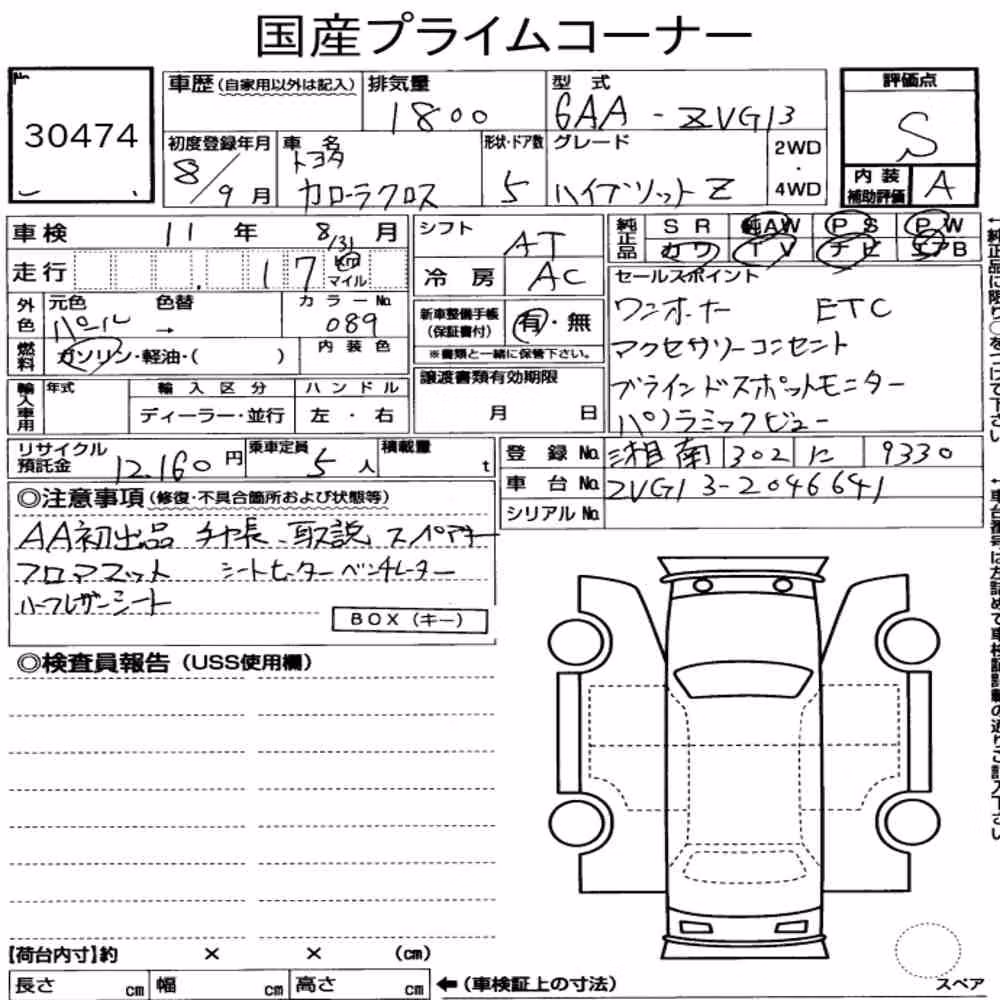 国産プライムコーナー
No.
30474
車歴(自家用以外は記入)
排気量
1800
型式
6AA-ZVG13
評価点
S
初度登録年月
8/9月
車名
トヨタ
カローラクロス
形状・ドア数
5
グレード
ハイブリットZ
2WD
・
4WD
内装
補助評価
A
車検 11年 8/31月
走行 17 Km マイル
シフト AT
冷房 AC
純正品 SR 純AW PS PW
カワ TV ナビ エアB
外色 元色 パール 色替 → カラーNo. 089
燃料 ガソリン・軽油・( ) 内装色
新車整備手帳
(保証書付) 有・無
※書類と一緒に保管下さい。
セールスポイント
ワンオーナー ETC
アクセサリーコンセント
ブラインドスポットモニター
パノラミックビュー
輸入車用 年式 輸入区分 ハンドル
ディーラー・並行 左・右
譲渡書類有効期限
月 日
リサイクル
預託金 12.160円
乗車定員 5人
積載量 t
登録No. 湘南 302 に 9330
車台No. ZVG13-2046641
シリアルNo.
◎注意事項(修復・不具合箇所および状態等)
AA初出品 手帳、取説 スペアキー
フロアマット シートヒーター ベンチレーター
ハーフレザーシート
BOX(キー)
◎検査員報告(USS使用欄)
【荷台内寸】約 × × (cm)
長さ cm 幅 cm 高さ cm
←(車検証上の寸法)
スペア
←純正品に限り○をつけて下さい
←車台番号は左詰めで車検証記載の通りご記入下さい